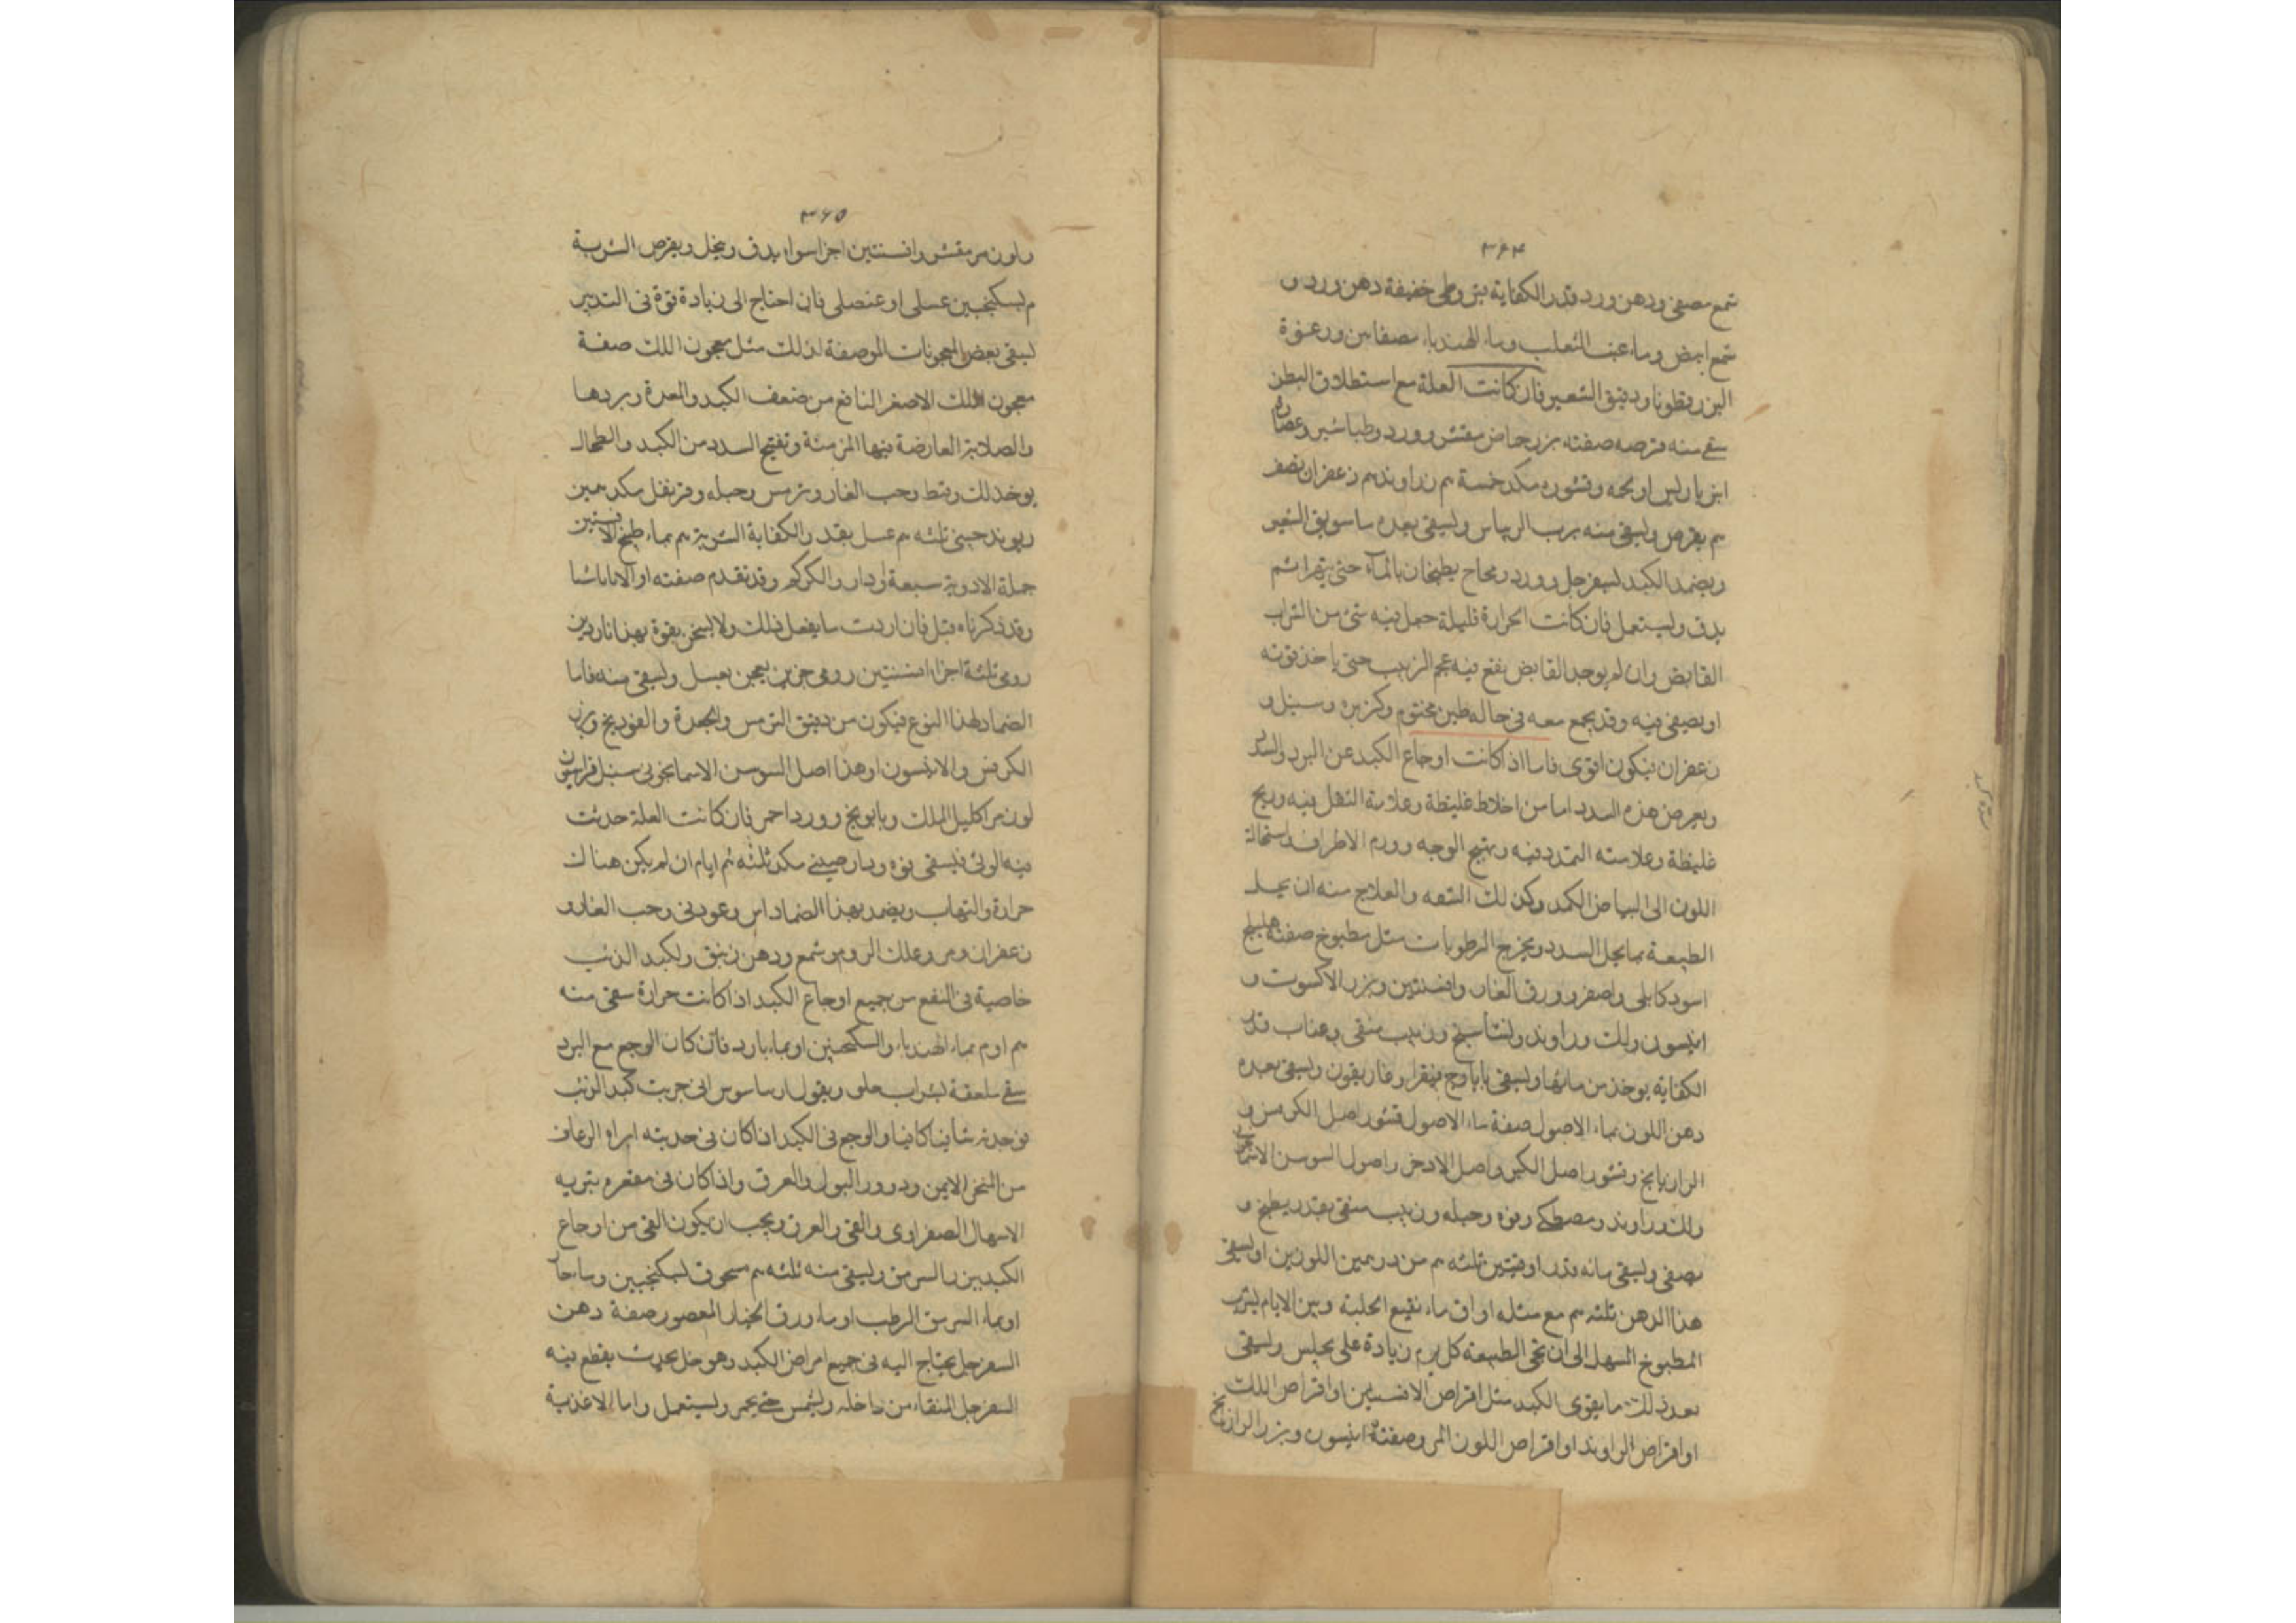 ٣٦٤
شمع مصفى ودهن ورد قدر الكفاية بتر وطى خفيفة دهن ورد و
شمع ابيض وماء عنب الثعلب وماء الهندباء مصفا من ورعنوة
البزر قطونا ودقيق الشعير فان كانت العلة مع استطلاق البطن
سقى منه قرصه صفته بزر حماض مقشر وورد وطباشير وعصارة
انبرباريس او لحمه وقشوره مكد خمسة م زراوند م زعفران نصف
م يقرص ويسقى منه برب الريباس ويسقى بعده ما سويق الشعير
ويضمد الكبد بسفرجل وورد يطبخان بالماء حتى يتهرا ثم
يدق ويستعمل فان كانت الحرارة قليلة جعل فيه شئ من الشراب
القابض وان لم يوجد القابض نقع فيه عجم الزبيب حتى ياخذ قوته
او يصفى فيه وقد يجمع معه فى حاله طين مختوم وكزبره وسنبل و
زعفران فيكون اقوى فاما اذا كانت اوجاع الكبد عن البرد والسدد
ويعرض هذه السدد اما من اخلاط غليظة وعلامة الثقل فيه وريح
غليظة وعلامته التمدد فيه وتهيج الوجه وورم الاطراف واستحالة
اللون الى البياض الكمد وكذلك الشفه والعلاج منه ان يحل
الطبيعة بما يحل السدد ويخرج الرطوبات مثل مطبوخ صفته هليلج
اسود كابلى واصفر وورق الغار وافسنتين وبزر الاكسوت و
انيسون ولك وراوند وزبيب منقى وعناب قدر
الكفايه يوخذ من مائها ويسقى بايارج فيقرا وغاريقون ويسقى بعده
دهن اللوز بماء الاصول صفة ماء الاصول قشور اصل الكرفس و
الرازيانج وقشور اصل الكبر واصل الاذخر واصول السوسن
ولك وراوند ومصطكى وفوه وحلبه وزبيب منقى بقدر يطبخ و
يصفى ويسقى مائه قدر اوقيتين ثلثه م من درهمين اللوزين او يسقى
هذا الدهن ثلثه م مع مثله اواق ماء نقيع الحلبة وبين الايام يشرب
المطبوخ المسهل الى ان تجى الطبيعة كل يوم زيادة على مجلس ويسقى
بعد ذلك ما يقوى الكبد مثل اقراص الافسنتين او اقراص اللك
او اقراص الراوند او اقراص اللوز المر وصفته انيسون وبزر الرازيانج
٣٦٥
ولوز مر مقشر وافسنتين اجزا سوا يدق وينخل ويقرص الشربة
م بسكنجبين عسلى او عنصلى فان احتاج الى زيادة قوة فى التدبير
ليسقى بعض المعجونات الموصفة لذلك مثل معجون اللك صفة
معجون اللك الاصغر النافع من ضعف الكبد والمعدة وبردها
والصلابة العارضة فيها المزمنة وتفتيح السدد من الكبد والطحال
يوخذ لك وقسط وحب الغار وترمس وحبله وقرنفل مكد درهمين
ريوند صينى ثلثه م عسل بقدر الكفاية الشربة م بماء طبخ الافسنتين
جملة الادوية سبعة ودار والكركم وقد تقدم صفته او الاناناسيا
وقد ذكرناه قبل فان اردت ما يفعل ذلك ولا يسخن بقوة بهذا ناردين
رومى ثلثة اجزا افسنتين رومى جزئين يعجن بعسل ويسقى منه فاما
الضماد لهذا النوع فيكون من دقيق الترمس والجعدة والفوديج وبزر
الكرفس والانيسون او هذا اصل السوسن الاسمانجونى سنبل فراسيون
لوز مر اكليل الملك وبابونج وورد احمر فان كانت العلة حدثت
فيه الوثى فليسقى فوه ودارصينى مكد ثلثه م ايام ان لم يكن هناك
حرارة والتهاب ويضمد بهذا الضماد اس وعود نى وحب الغار و
زعفران ومر وعلك الروم وشمع ودهن زنبق ولكبد الذئب
خاصية فى النفع من جميع اوجاع الكبد اذا كانت حرارة سقى منه
م او م بماء الهندباء والسكنجبين او بماء بارد فان كان الوجع مع البرد
سقى ملعقة بشراب حلو ويقول ارساسوس انى جربت كبد الذئب
فوجدته شافيا كافيا والوجع فى الكبد اذا كان فى حدبته ابراه الرعاف
من المنخر الايمن ودرور البول والعرق واذا كان فى مقعره يتبريه
الاسهال الصفراوى والقى والعرق ويجب ان يكون القى من اوجاع
الكبد بزر السرمق ويسقى منه ثلثه م مسحوق بسكنجبين وماء حار
او بماء السرمق الرطب او ماء ورق الخيار المعصور صفة دهن
السفرجل يحتاج اليه فى جميع امراض الكبد وهو خل يقطع فيه
السفرجل المنقاء من داخله ويشمس حتى يحمر ويستعمل واما الاغذية
سدة كبد